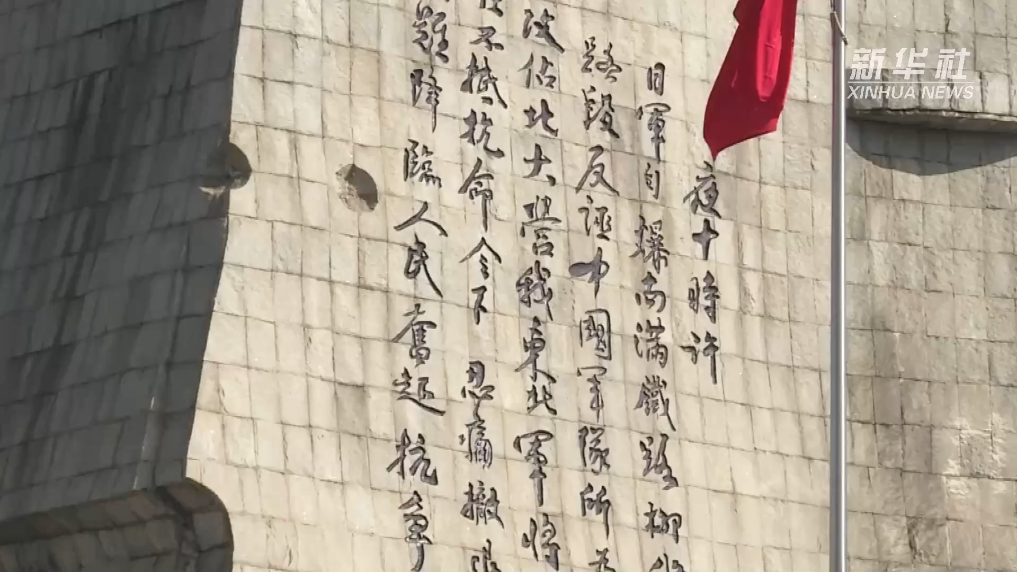 夜十時許
日軍自爆南滿鐵路柳
路段反誣中國軍隊所為
後佔北大營我東北軍將
不抵抗命令下 忍痛撤退
難降臨人民奮起抗爭
新华社
XINHUA NEWS